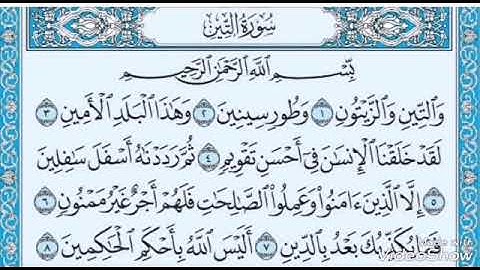 سُورَةُ التِّينِ
بِسْمِ اللَّهِ الرَّحْمَٰنِ الرَّحِيمِ
وَالتِّينِ وَالزَّيْتُونِ ١ وَطُورِ سِينِينَ ٢ وَهَٰذَا الْبَلَدِ الْأَمِينِ ٣
لَقَدْ خَلَقْنَا الْإِنسَانَ فِي أَحْسَنِ تَقْوِيمٍ ٤ ثُمَّ رَدَدْنَٰهُ أَسْفَلَ سَافِلِينَ
٥ إِلَّا الَّذِينَ ءَامَنُوا وَعَمِلُوا الصَّالِحَاتِ فَلَهُمْ أَجْرٌ غَيْرُ مَمْنُونٍ ٦
فَمَا يُكَذِّبُكَ بَعْدُ بِالدِّينِ ٧ أَلَيْسَ اللَّهُ بِأَحْكَمِ الْحَاكِمِينَ ٨
Made with
VIDEOSHOW